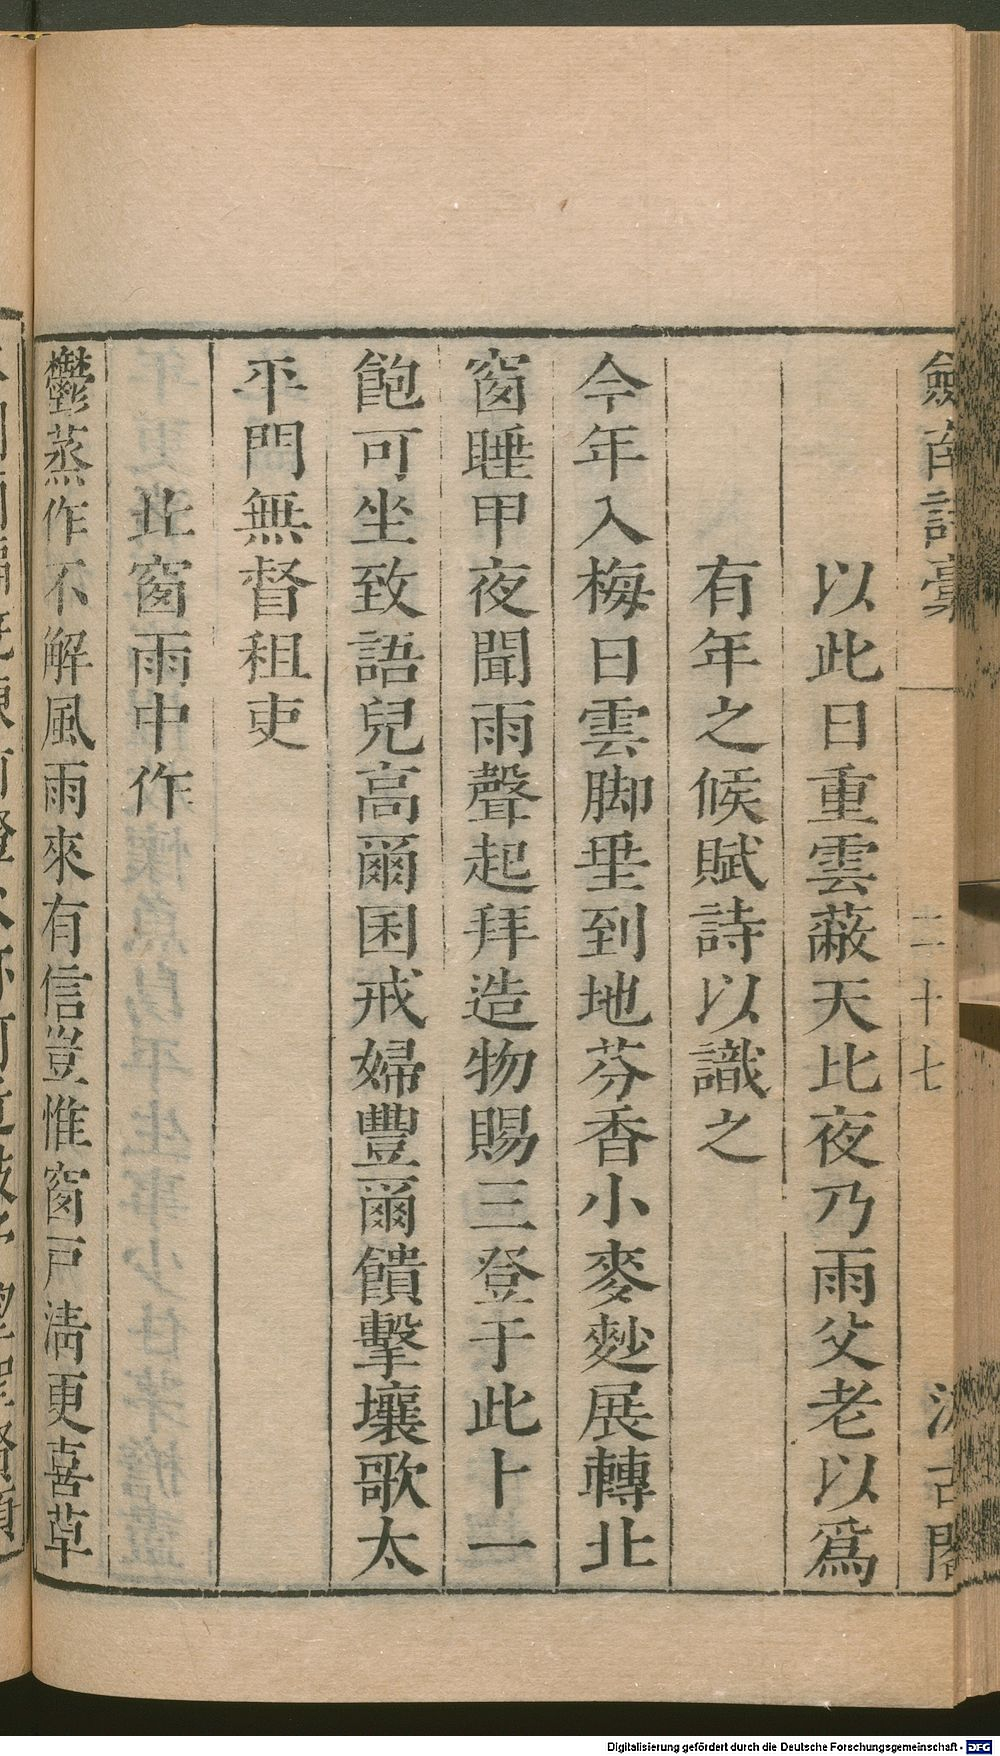 劍南詩稾
二十七
汲古閣
以此日重雲蔽天比夜乃雨父老以爲
有年之候賦詩以識之
今年入梅日雲脚垂到地芬香小麥麨展轉北
窗睡甲夜聞雨聲起拜造物賜三登于此卜一
飽可坐致語兒高爾囷戒婦豐爾饋擊壤歌太
平門無督租吏
北窗雨中作
鬱蒸作不解風雨來有信豈惟窗戸淸更喜草
Digitalisierung gefördert durch die Deutsche Forschungsgemeinschaft - DFG